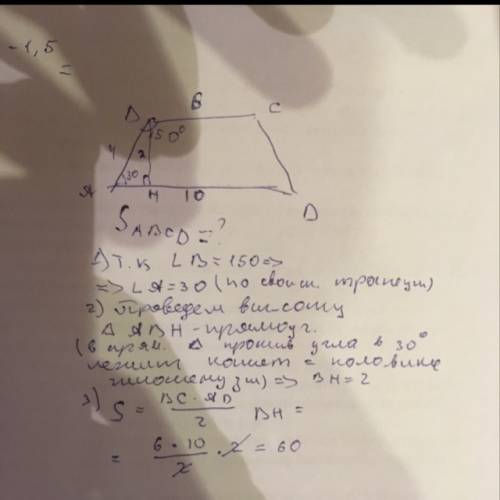 -1,5
=
6
B C
150°
4 2
30
A H 10 D
S ABCD = ?
1) т.к ∠B = 150 =>
=> ∠A = 30 (по свойст. трапеции)
2) Проведем высоту
Δ ABH - прямоуг.
(в прям. Δ против угла в 30°
лежит катет = половине
гипотенузы) => BH = 2
3) S = BC · AD / 2 BH =
= 6 · 10 / 2 · 2 = 60